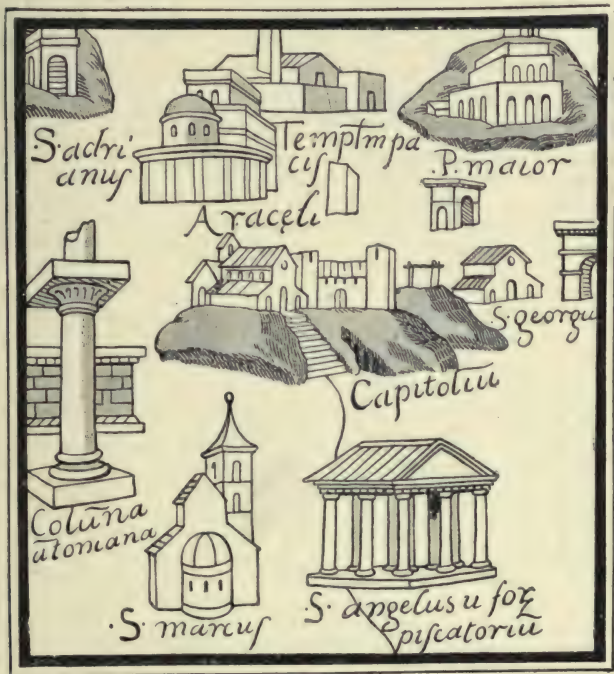 S. adri
anuſ
Temptmpa
ciſ
.P. maior
Aracęli
S. georgu
Capitoliu
Colūna
ātoniana
.S. marcuſ
S. angelus u forꝝ
piſcatoriū